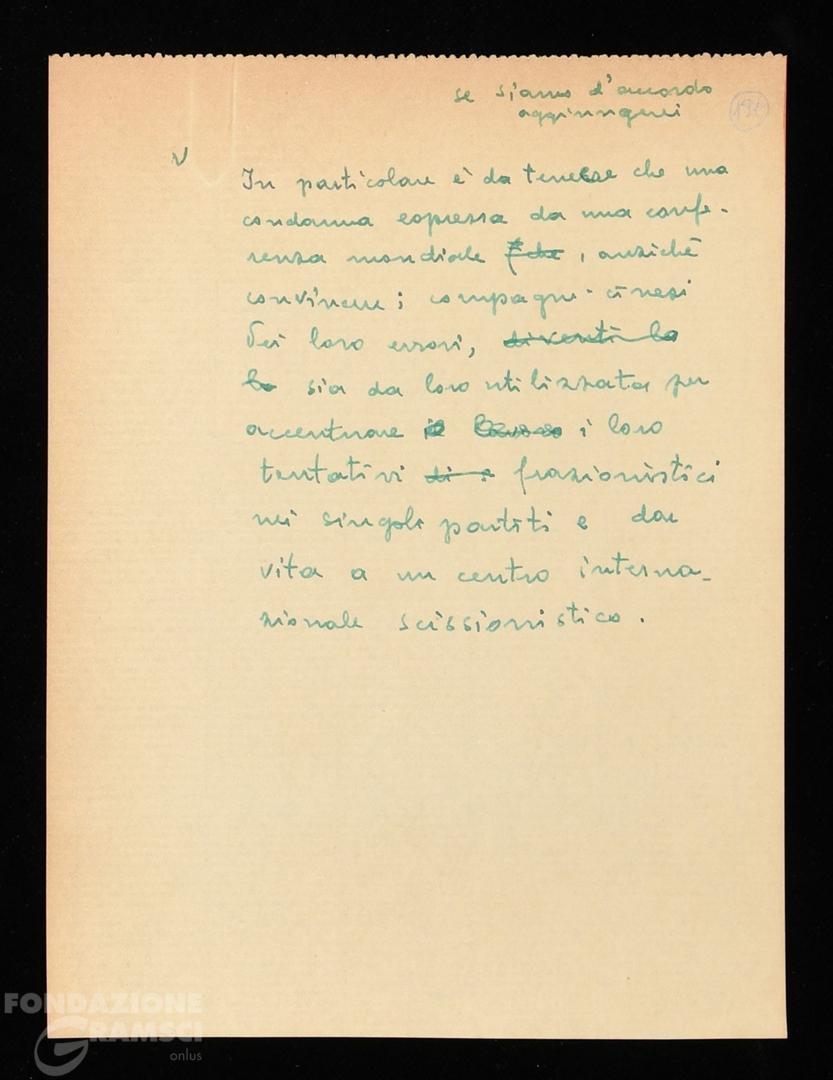 se siamo d'accordo
aggiungerei
V
In particolare è da temere che una
condanna espressa da una confe-
renza mondiale, anziché
convincere i compagni cinesi
dei loro errori, diventi la
la sia da loro utilizzata per
accentuare il i loro
tentativi di frazionistici
nei singoli partiti e dar
vita a un centro interna-
zionale scissionistico.
FONDAZIONE
GRAMSCI
onlus